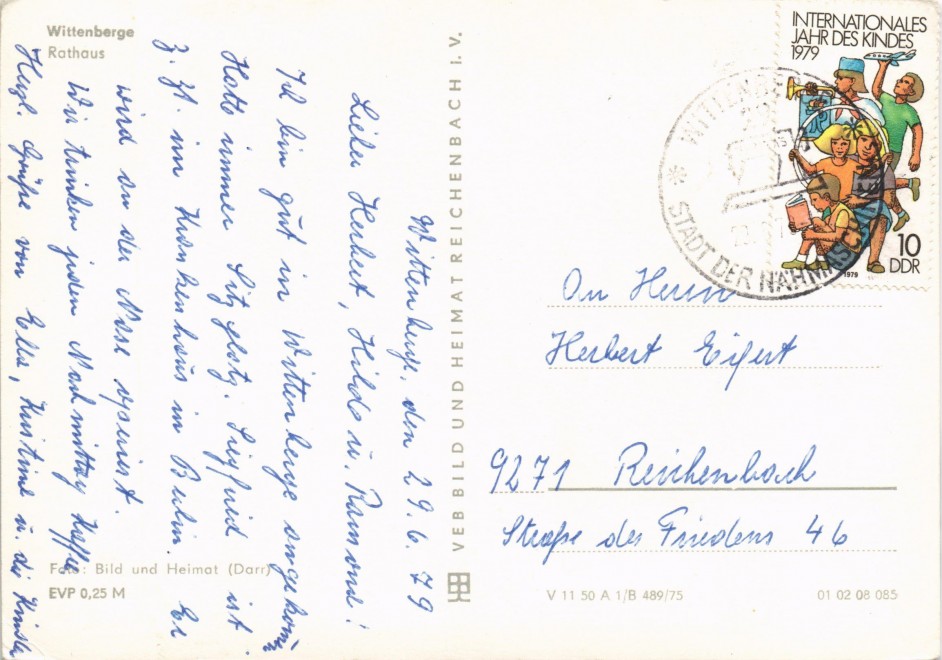 Wittenberge
Rathaus
Wittenberge, den 29.6.79
Lieber Herbert, Hilde u. Ramona!
Ich bin gut in Wittenberge angekomm
Hatte immer Sitzplatz. Siegfried ist
z. Zt. im Krankenhaus in Berlin. Er
wird an der Nase operiert.
Wir trinken jeden Nachmittag Kaffee
Herzl. Grüße von Ella, Kristine u. die Kinder
Foto: Bild und Heimat (Darr)
EVP 0,25 M
VEB BILD UND HEIMAT REICHENBACH I. V.
INTERNATIONALES
JAHR DES KINDES
1979
10
DDR
1979
* WITTENBERGE
STADT DER NÄHMASCHINE
An Herrn
Herbert Eifert
9271 Reichenbach
Straße des Friedens 46
V 11 50 A 1/B 489/75
01 02 08 085